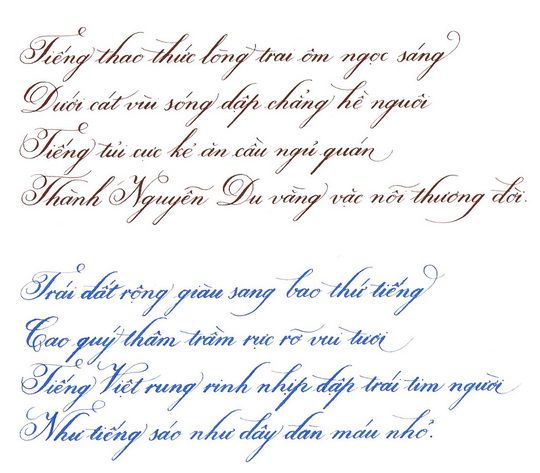 Tiếng thao thức lòng trai ôm ngọc sáng
Dưới cát vùi sóng dập chẳng hề nguôi
Tiếng tủi cực kẻ ăn cầu ngủ quán
Thành Nguyễn Du vằng vặc nỗi thương đời.
Trái đất rộng giàu sang bao thứ tiếng
Cao quý thâm trầm rực rỡ vui tươi
Tiếng Việt rung rinh nhịp đập trái tim người
Như tiếng sáo như dây đàn máu nhỏ.